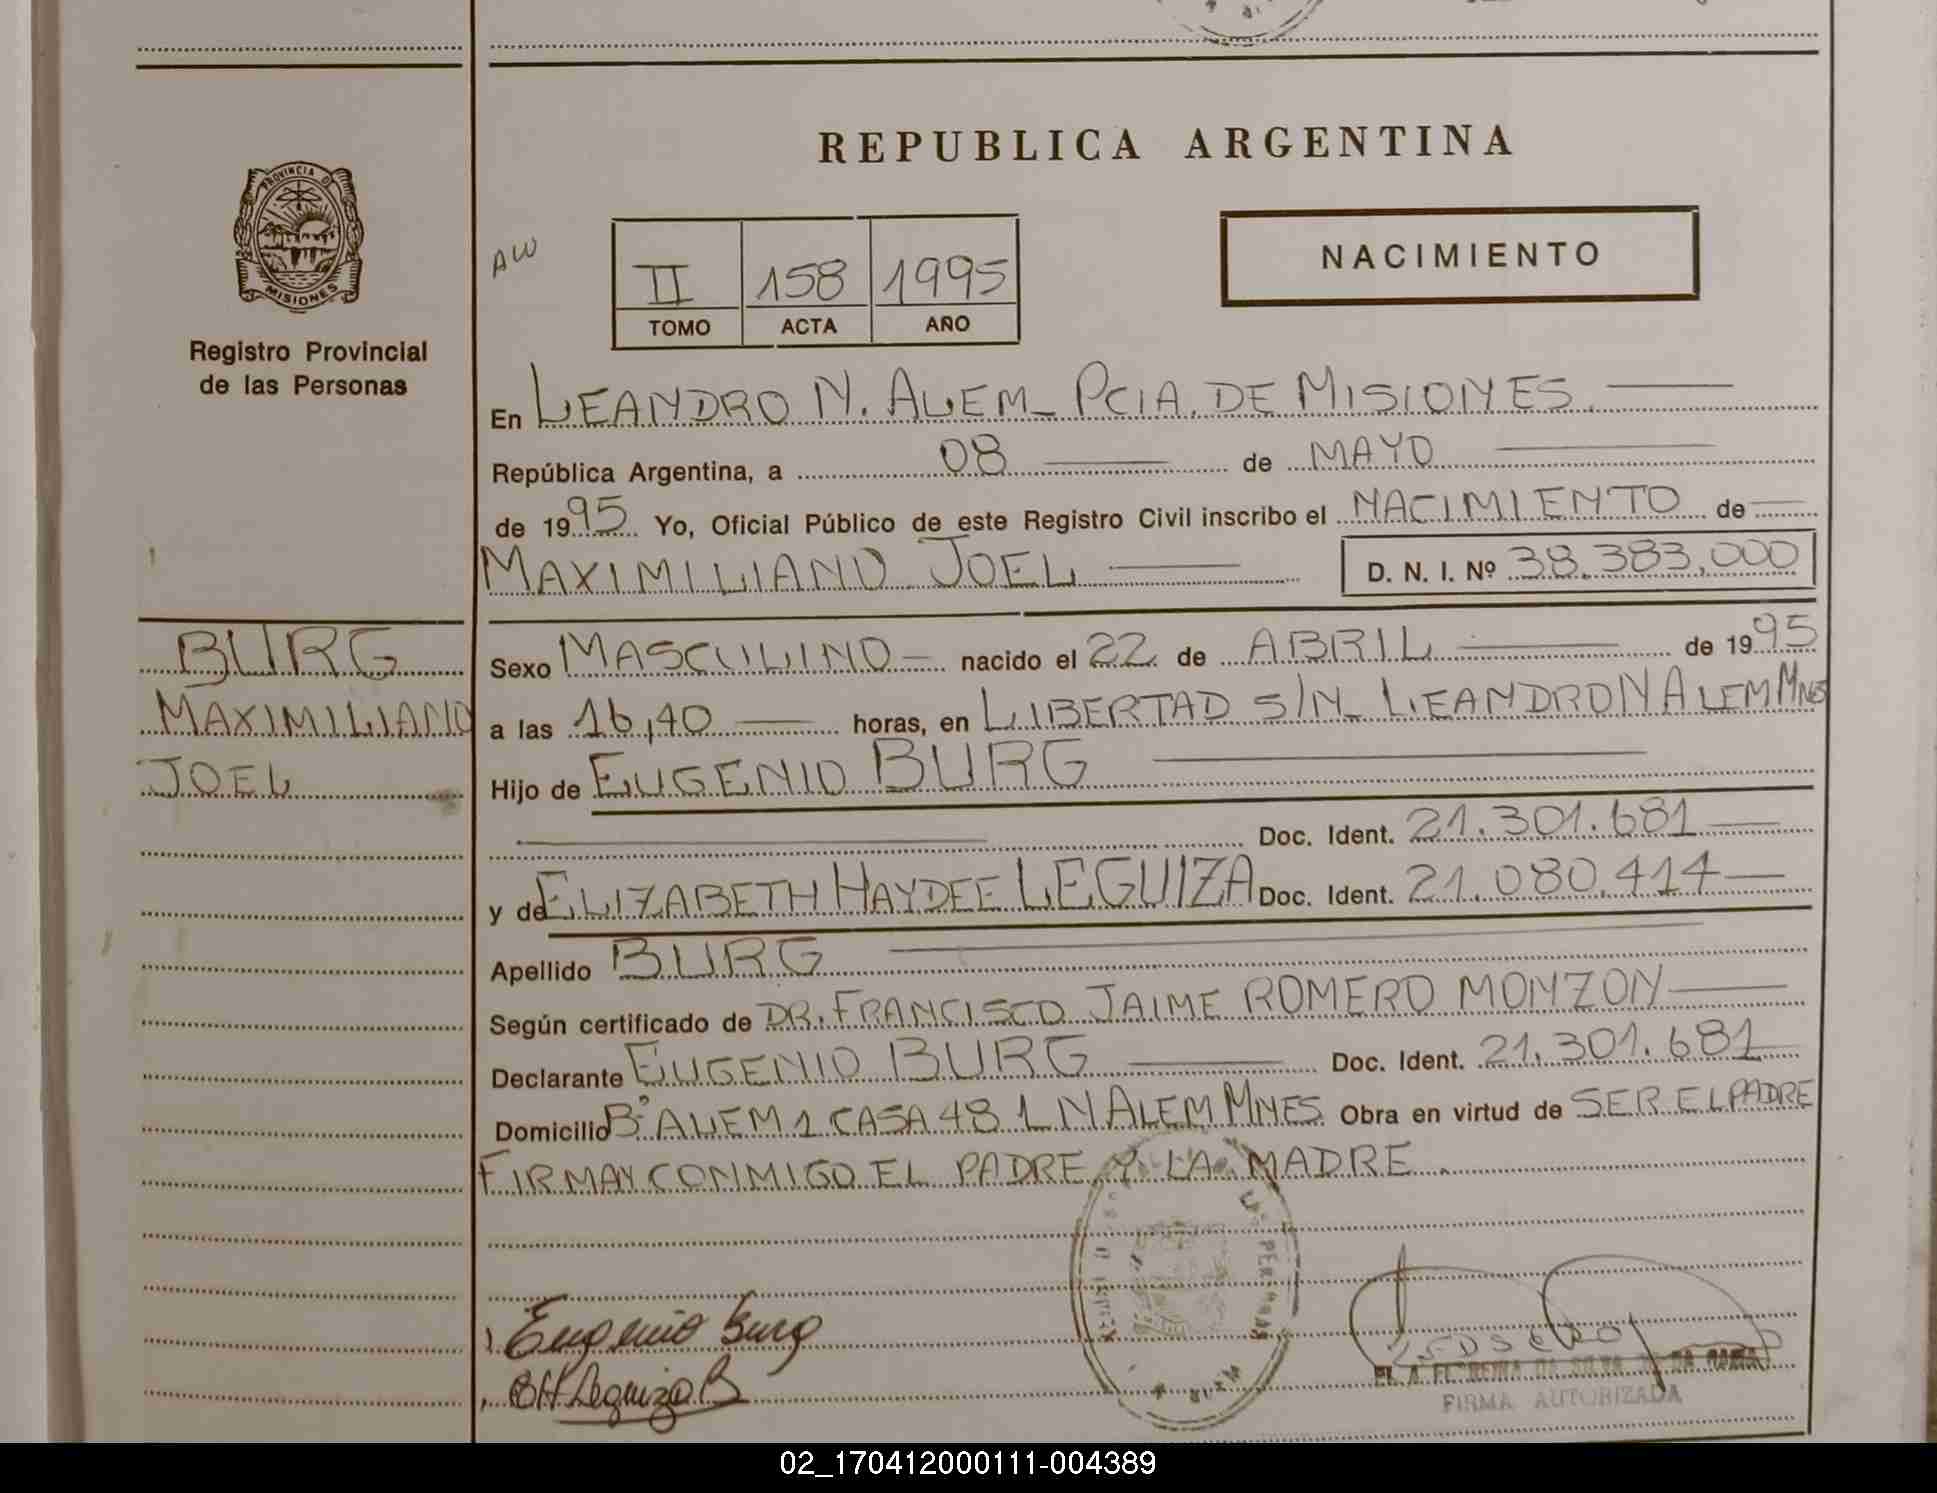 REPUBLICA ARGENTINA
PROVINCIA D
MISIONES
Registro Provincial
de las Personas
AW
II 158 1995
TOMO ACTA AÑO
NACIMIENTO
En LEANDRO N. ALEM_ PCIA. DE MISIONES.
República Argentina, a 08 de MAYO
de 1995 Yo, Oficial Público de este Registro Civil inscribo el NACIMIENTO de
MAXIMILIANO JOEL D. N. I. Nº 38.383.000
BURG
MAXIMILIANO
JOEL
Sexo MASCULINO nacido el 22 de ABRIL de 1995
a las 16,40 horas, en LIBERTAD S/N_ LEANDRO N ALEM MNES
Hijo de EUGENIO BURG
Doc. Ident. 21.301.681
y de ELIZABETH HAYDEE LEGUIZA Doc. Ident. 21.080.414
Apellido BURG
Según certificado de DR. FRANCISCO JAIME ROMERO MONZON
Declarante EUGENIO BURG Doc. Ident. 21.301.681
Domicilio Bº ALEM 1 CASA 48 L N ALEM MNES Obra en virtud de SER EL PADRE
FIRMAN CONMIGO EL PADRE Y LA MADRE.
Eugenio Burg
EH Leguiza B
FIRMA AUTORIZADA
02_170412000111-004389